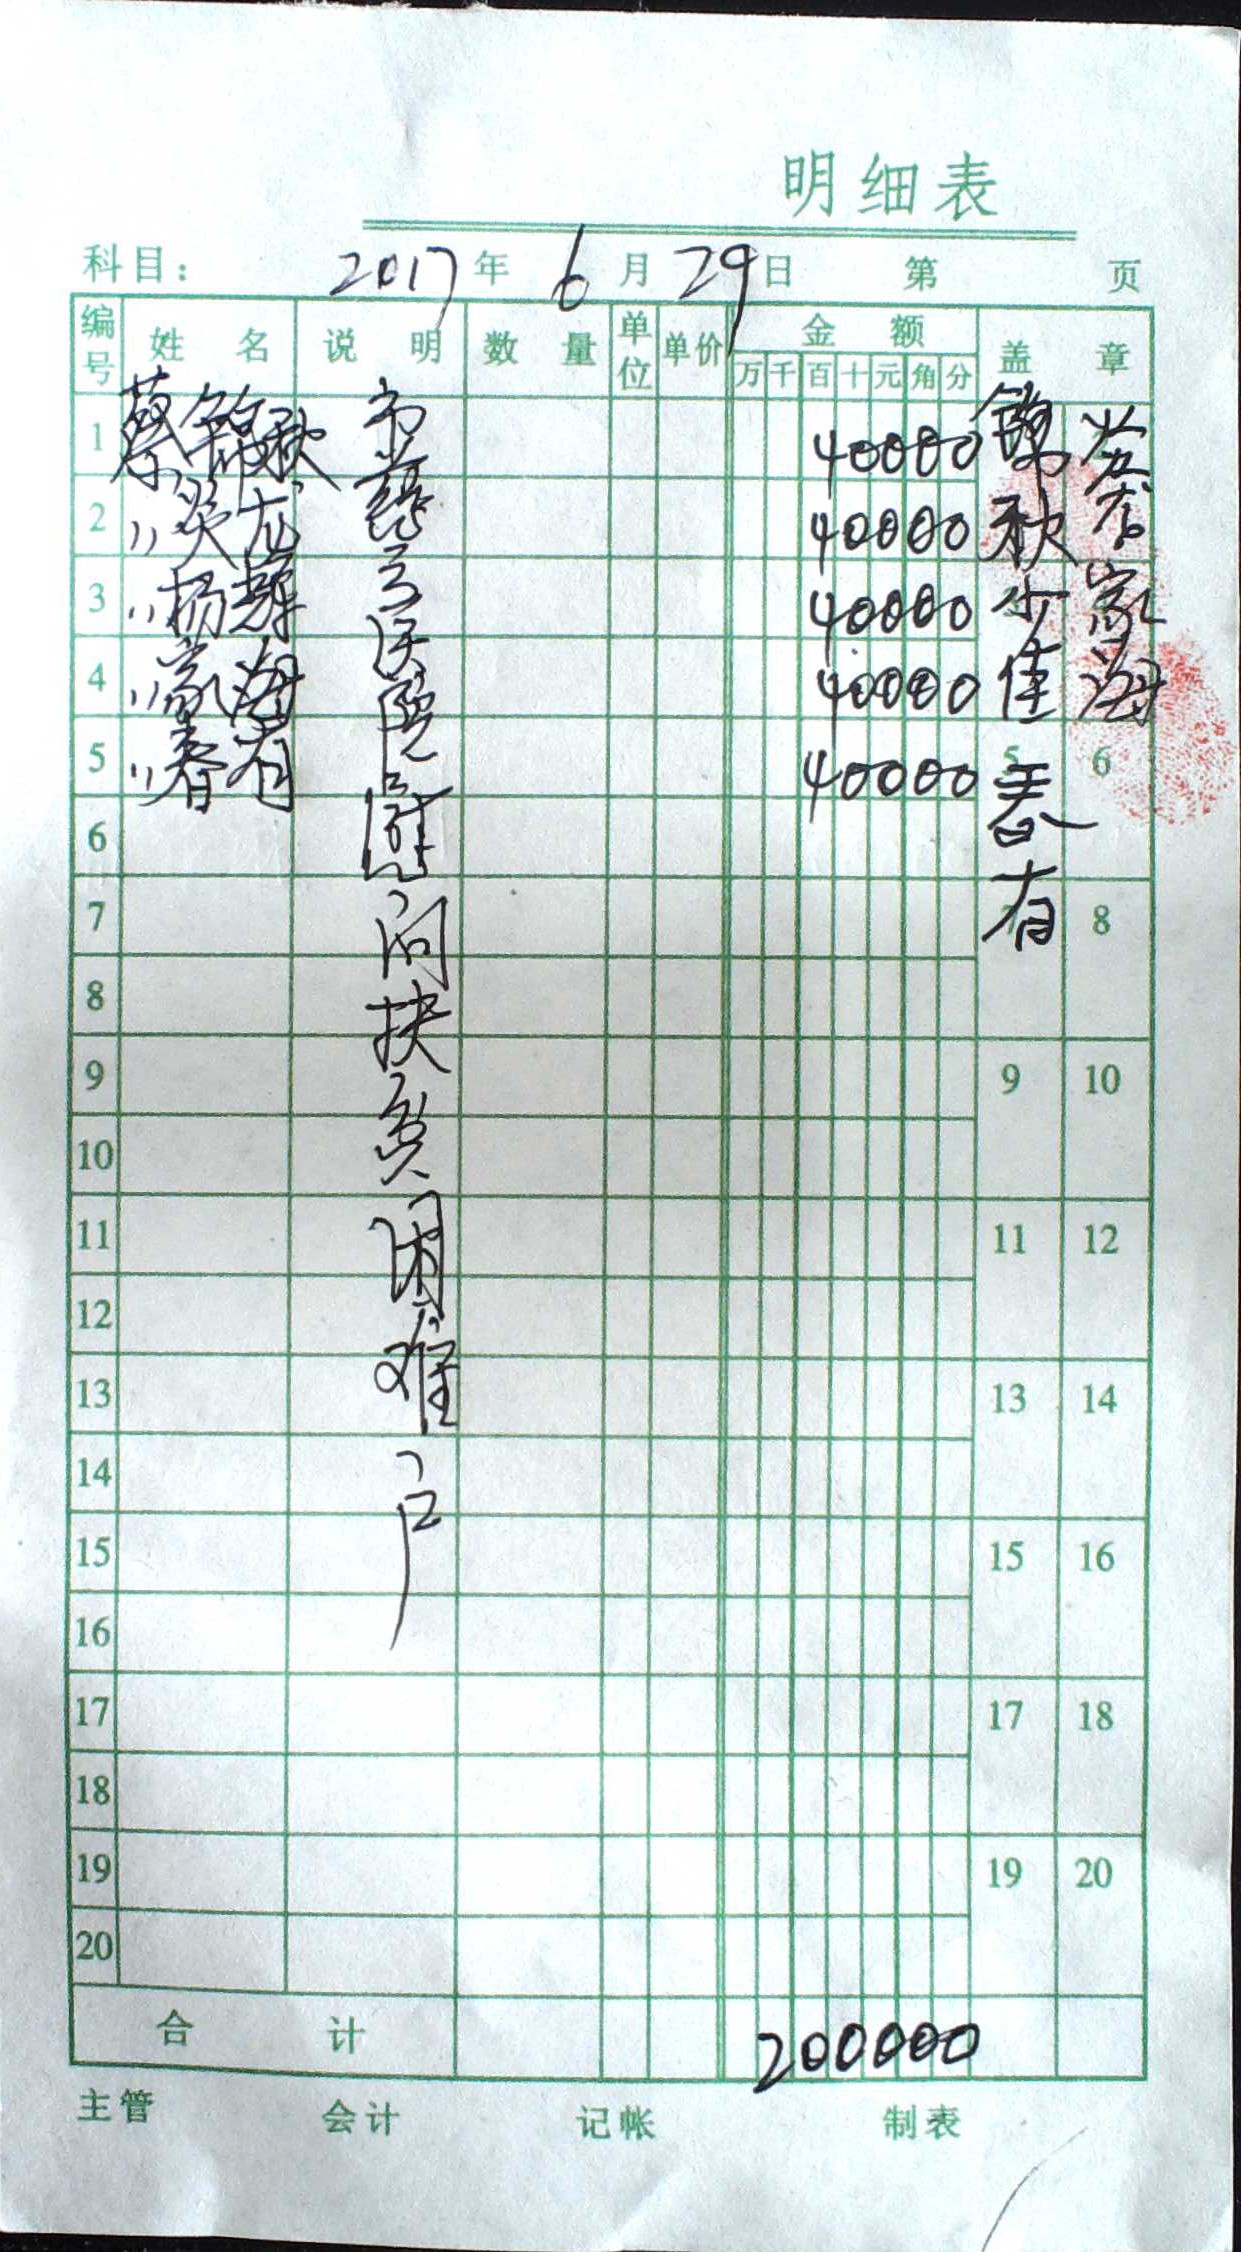 明细表
科目: 2017年 6月 29日 第 页
编号 姓名 说明 数量 单位 单价 金额 盖章
万 千 百 十 元 角 分
1 蔡锦秋 40000
2 〃炎龙 40000
3 〃杨辉 40000
4 〃家海 40000
5 〃春有 40000
医院慰问扶贫困难户
锦秋
少佳
春有
家海
5 6
6
7 8
8
9 9 10
10
11 11 12
12
13 13 14
14
15 15 16
16
17 17 18
18
19 19 20
20
合计 200000
主管 会计 记帐 制表